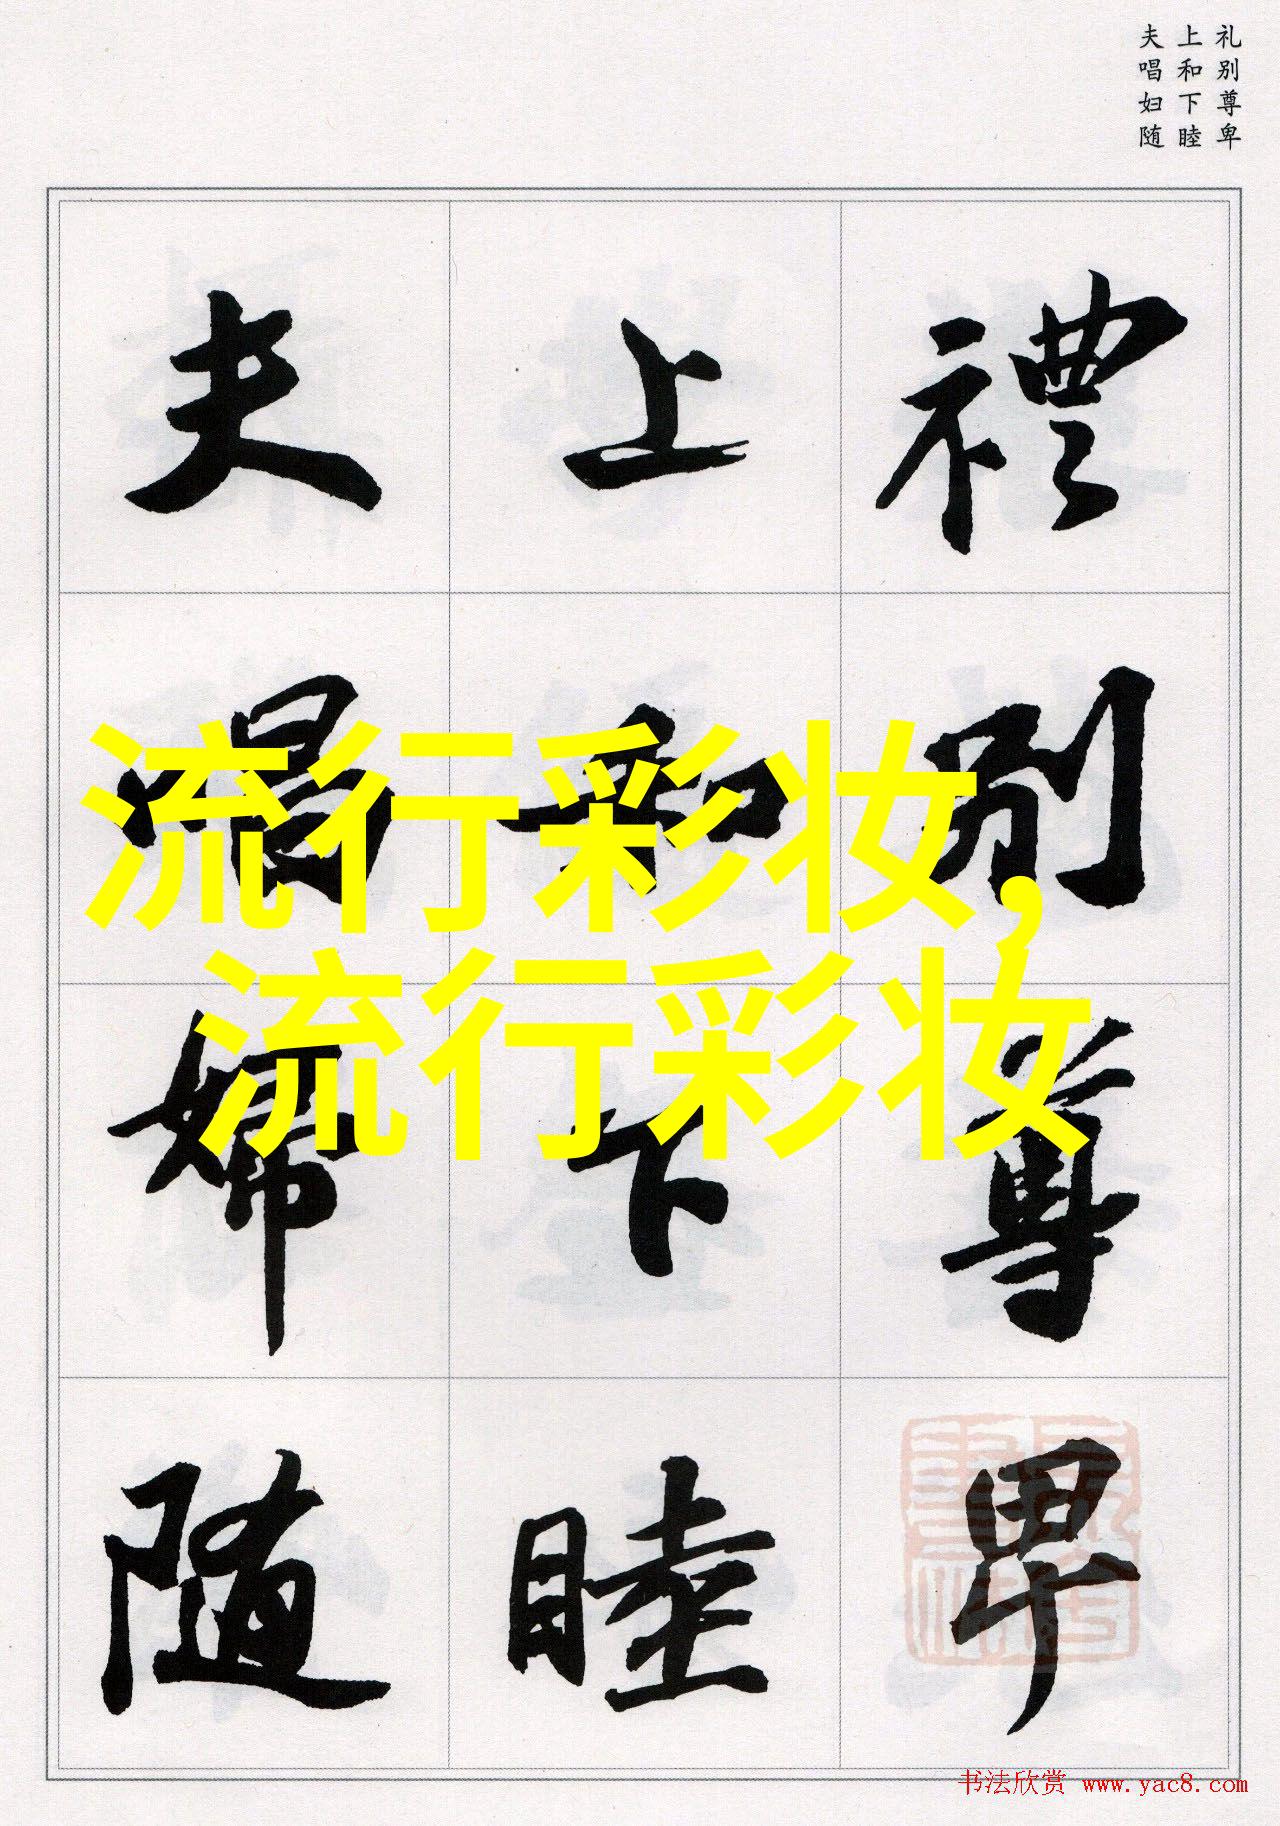 礼别尊卑
上和下睦
夫唱妇随
禮別尊卑
上和下睦
夫唱婦随
流行彩妆,
流行彩妆
书法欣赏 www.yac8.com